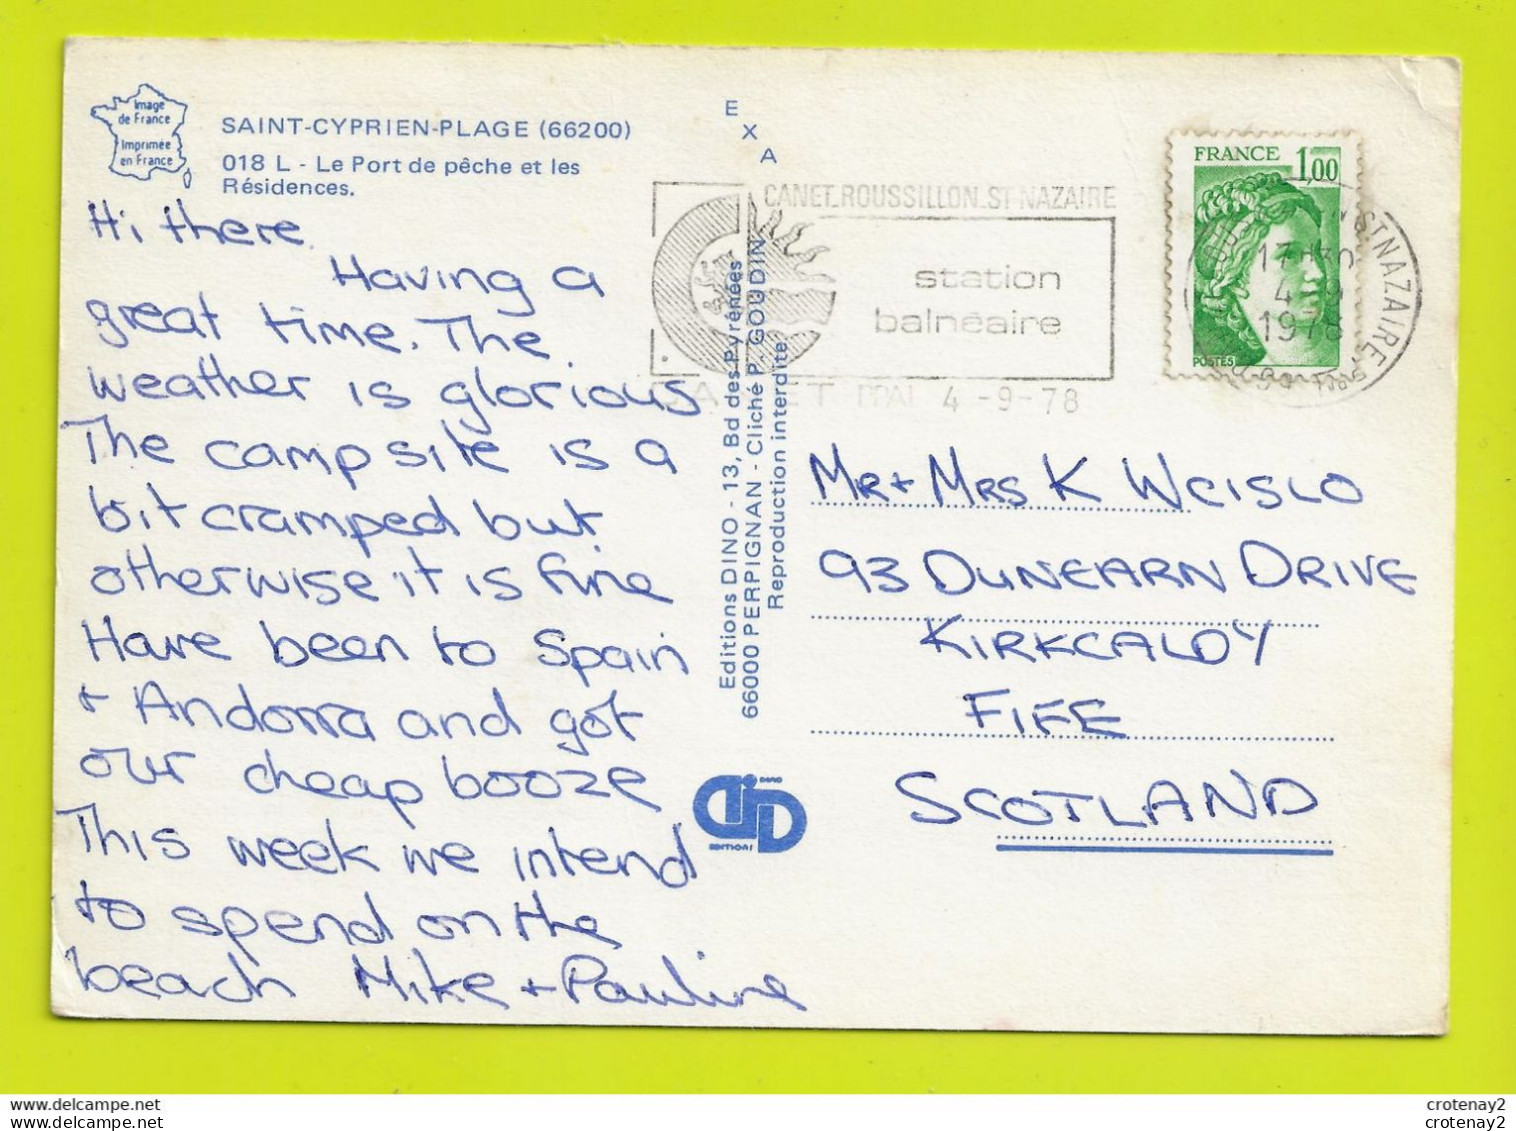 Image
de France
Imprimée
en France
SAINT-CYPRIEN-PLAGE (66200)
018 L - Le Port de pêche et les
Résidences.
Hi there
Having a
great time. The
weather is glorious
The camp site is a
bit cramped but
otherwise it is fine
Have been to Spain
+ Andorra and got
our cheap booze
This week we intend
to spend on the
beach Mike + Pauline
EXA
Editions DINO - 13, Bd des Pyrénées
66000 PERPIGNAN - Cliché P. GOUDIN
Reproduction interdite
DINO
EDITIONS
CANET.ROUSSILLON.ST NAZAIRE
station
balnéaire
CANET PPAL 4 -9 -78
FRANCE 1,00
POSTES
ST NAZAIRE
17H30
4 -9
1978
MR + MRS K WCISLO
93 DUNEARN DRIVE
KIRKCALDY
FIFE
SCOTLAND
crotenay2
crotenay2
crotenay2
crotenay2